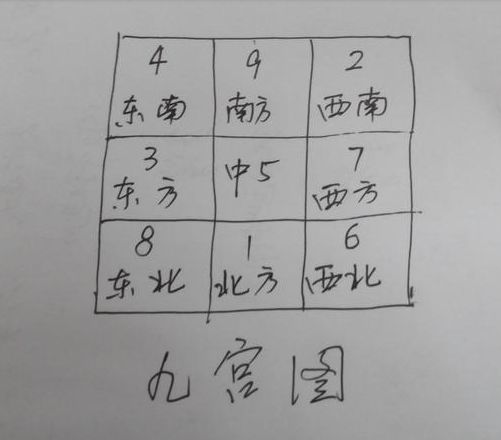 4 9 2
东南 南方 西南
3 中5 7
东方 西方
8 1 6
东北 北方 西北
九宫图